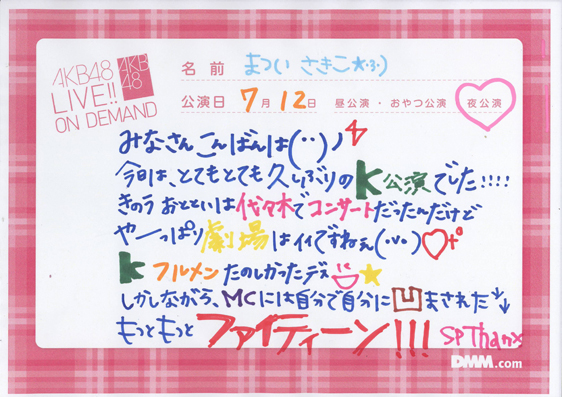 AKB48
LIVE!!
ON DEMAND
AKB
48
名前 まつい さきこ★·3·)
公演日 7月12日 昼公演・おやつ公演 夜公演
みなさんこんばんは(··)ノ
今日は、とてもとても久しぶりのK公演でした!!!!
きのう おとといは代々木でコンサートだったんだけど
やーっぱり劇場はイイですねぇ(·v·)♡
K フルメン たのしかったデス★
しかしながら、MCには自分で自分に凹まされた↓↓
もっともっとファイティーン!!! SPThanx
DMM.com